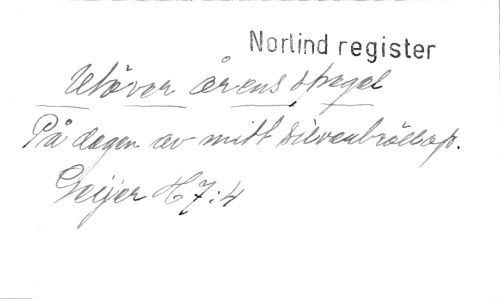 Norlind register
Utöver årens spegel
På dagen av mitt silverbröllop.
Geijer H7:4